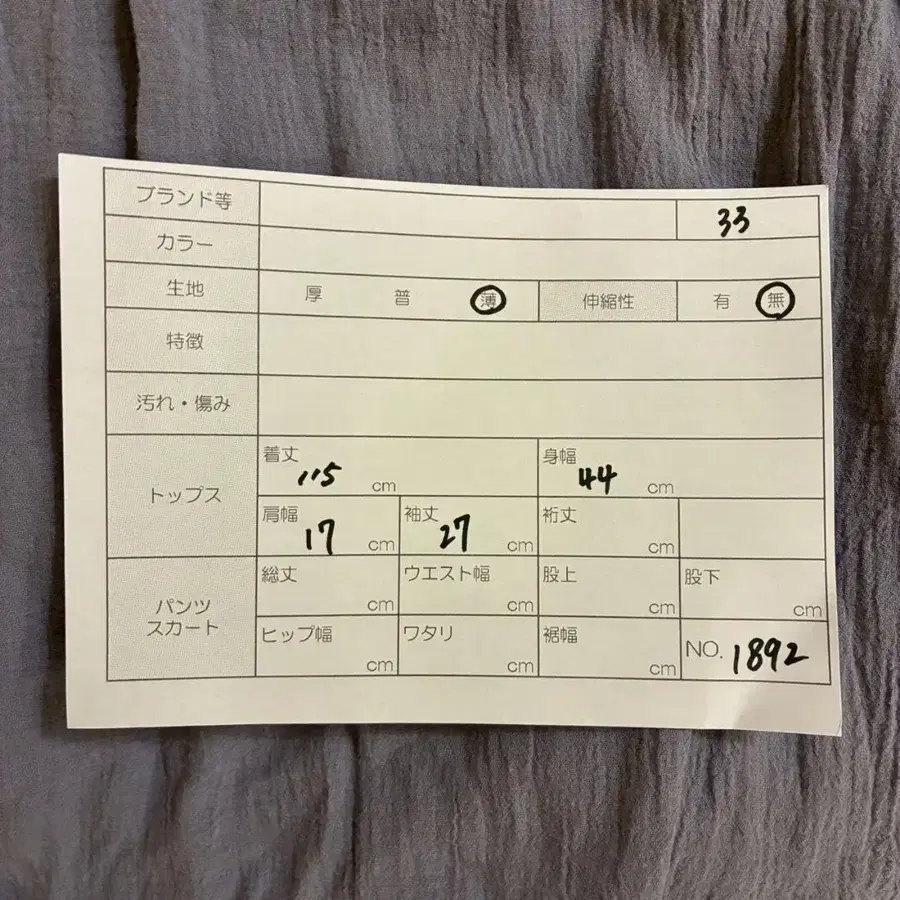 ブランド等 33
カラー
生地 厚 普 薄 伸縮性 有 無
特徴
汚れ・傷み
トップス
着丈 115 cm 身幅 44 cm
肩幅 17 cm 袖丈 27 cm 裄丈 cm
パンツ
スカート
総丈 cm ウエスト幅 cm 股上 cm 股下 cm
ヒップ幅 cm ワタリ cm 裾幅 cm NO. 1892